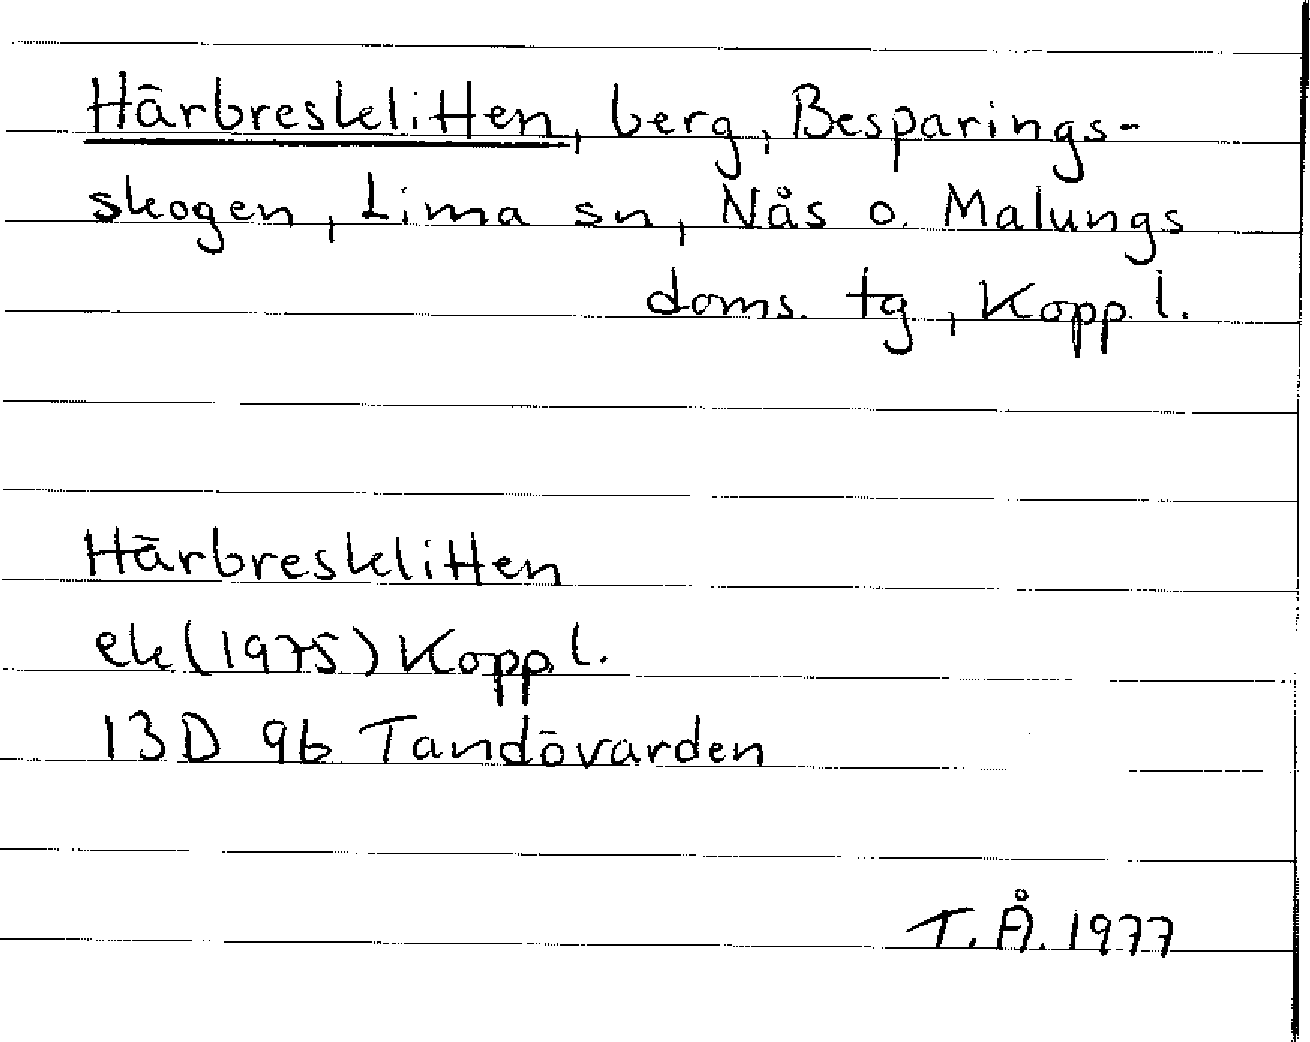 Härbresklitten, berg, Besparings-
skogen, Lima sn, Nås o. Malungs
doms. tg, Kopp. l.
Härbresklitten
ek (1975) Kopp. l.
13D 9b Tandövarden
T. Å. 1977